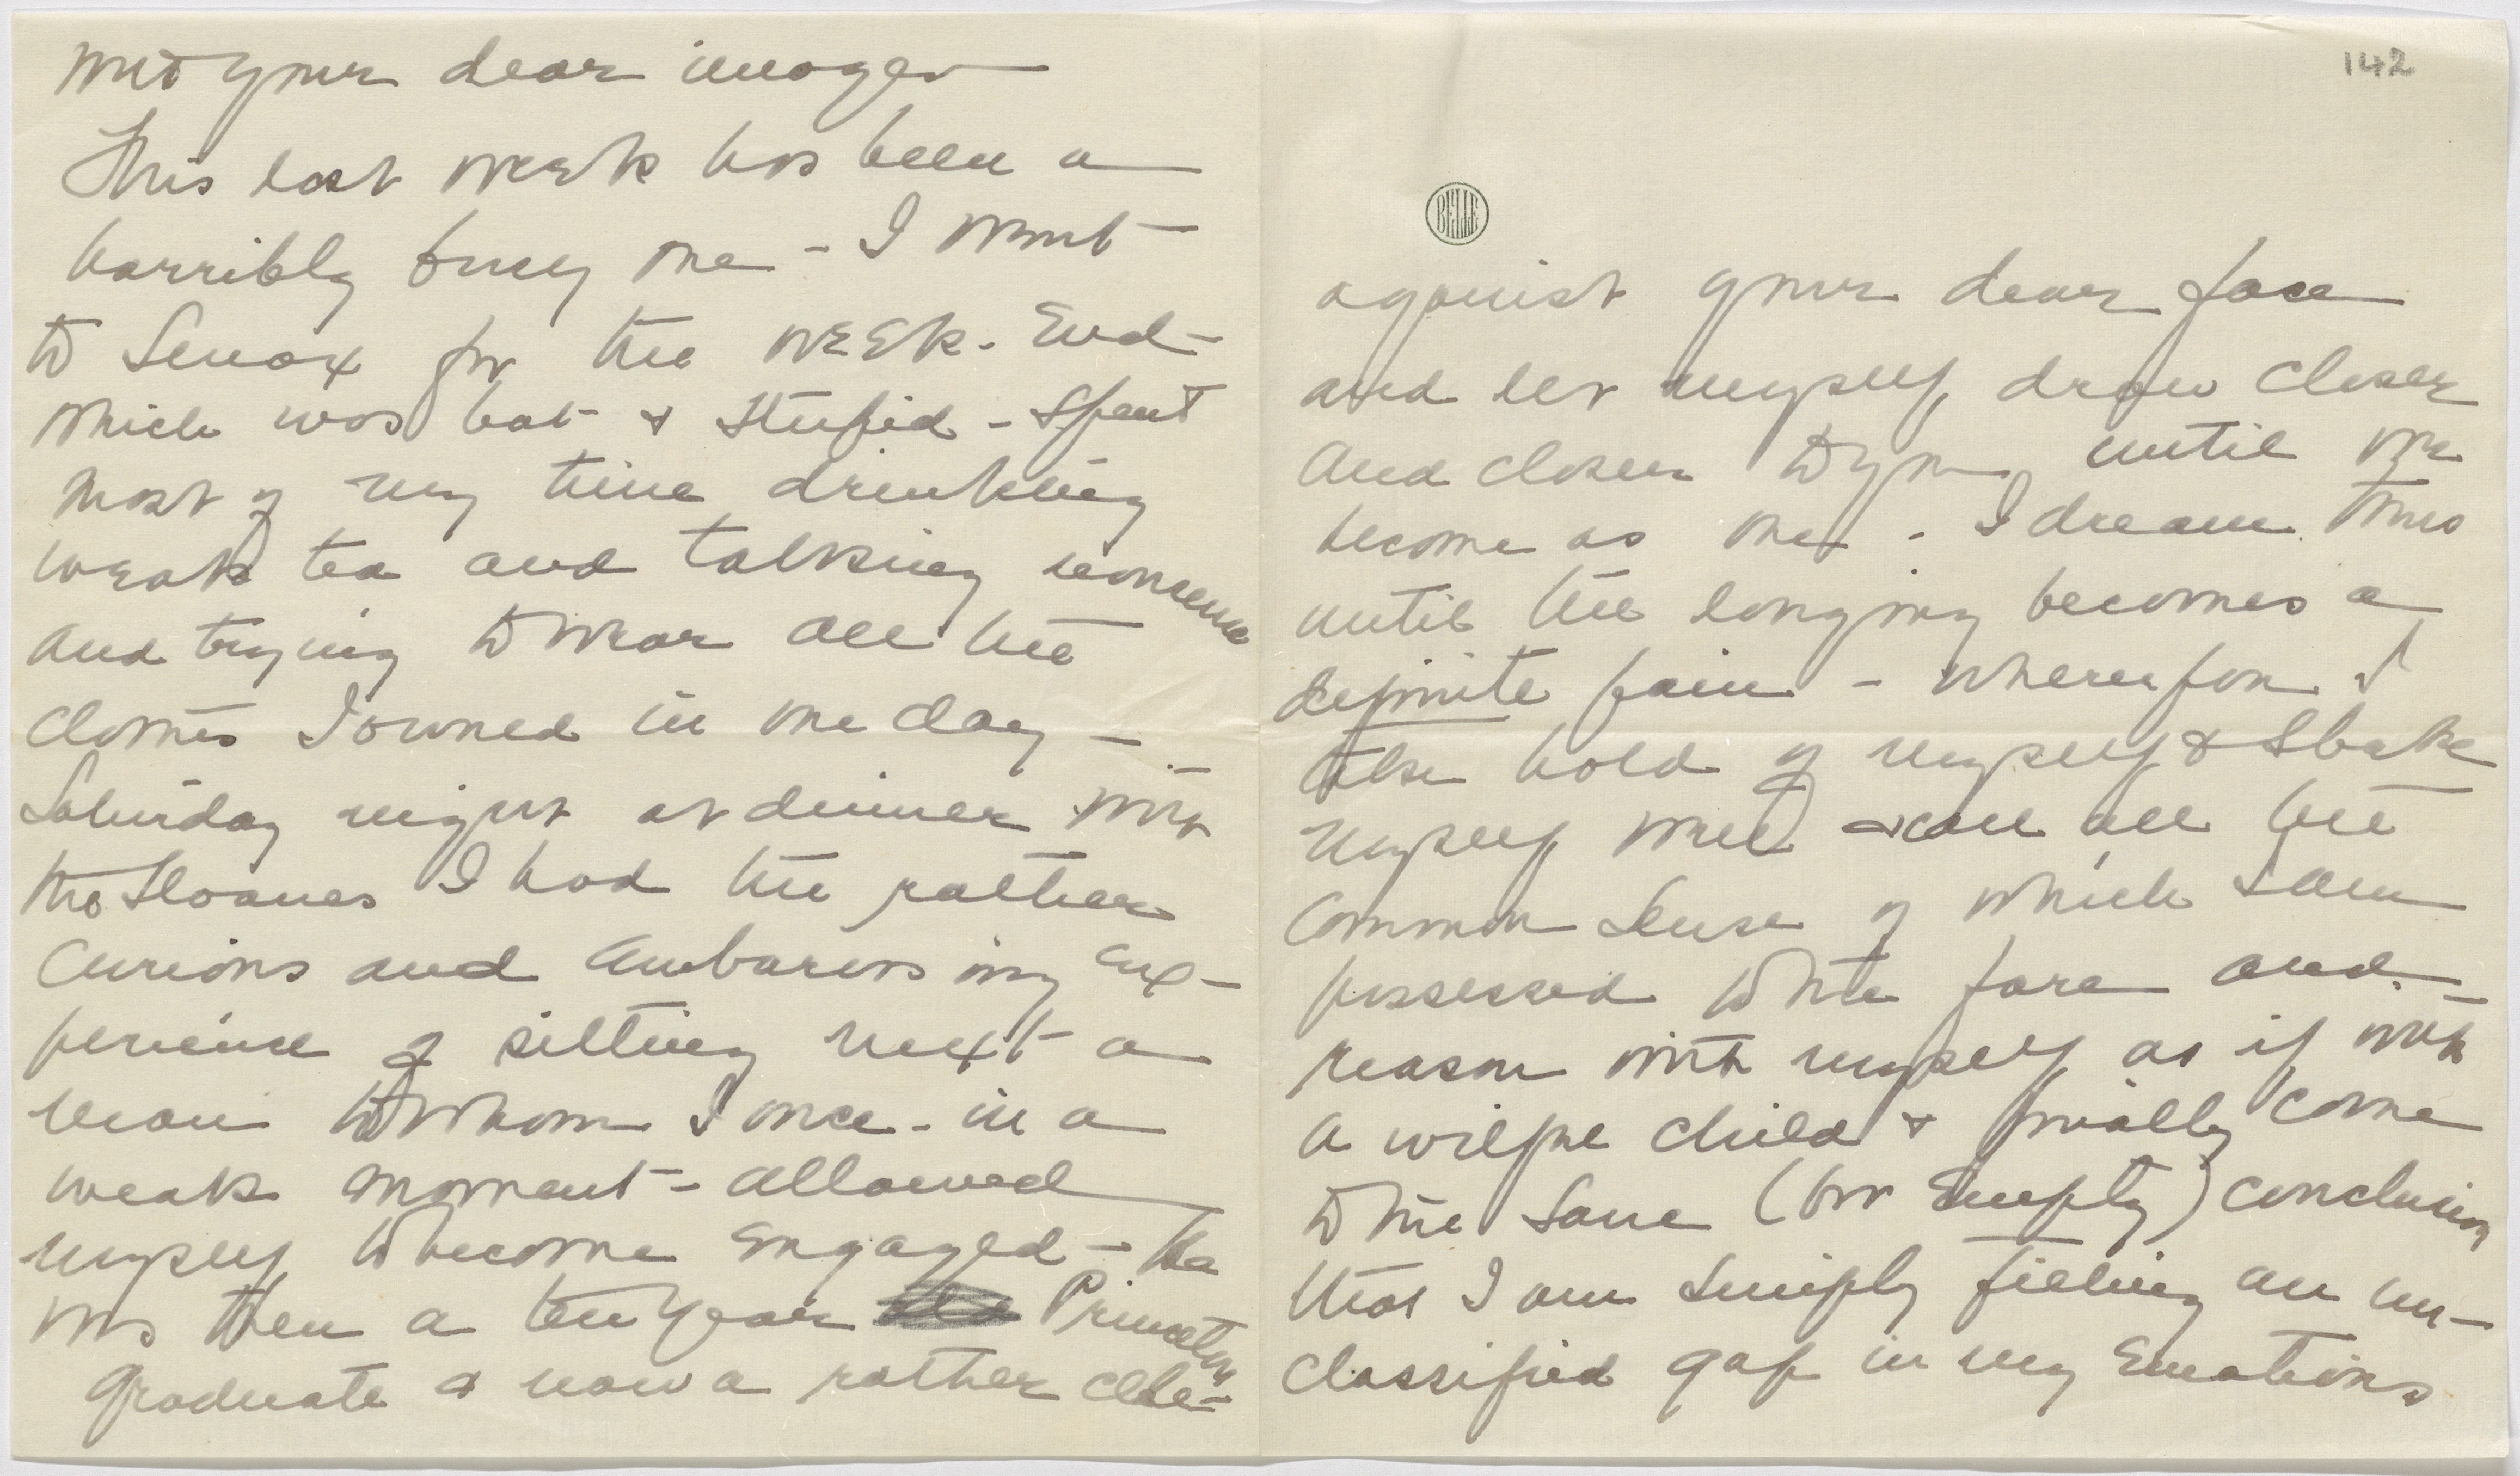 with your dear image
This last week has been a
horribly busy one - I went
to Lenox for the week-End -
which was hot & stupid - Spent
most of my time drinking
weak tea and talking nonsense
and trying to wear all the
clothes I owned in one day -
Saturday night at dinner with
the Sloanes I had the rather
curious and embarassing ex-
perience of sitting next a
man to whom I once - in a
weak moment - allowed
myself to become engaged - he
was then a ten year Princeton
graduate & now a rather elde-
142
BELLE
against your dear face
and let myself draw closer
and closer to you until we
become as one - I dream thus
until the longing becomes a
definite pain - whereupon I
take hold of myself & shake
myself well & call all the
common sense of which I am
possessed to the fore and
reason with myself as if with
a wilful child & finally come
to the sane (or Empty) conclusion
that I am simply filling an un-
classified gap in my Emotions